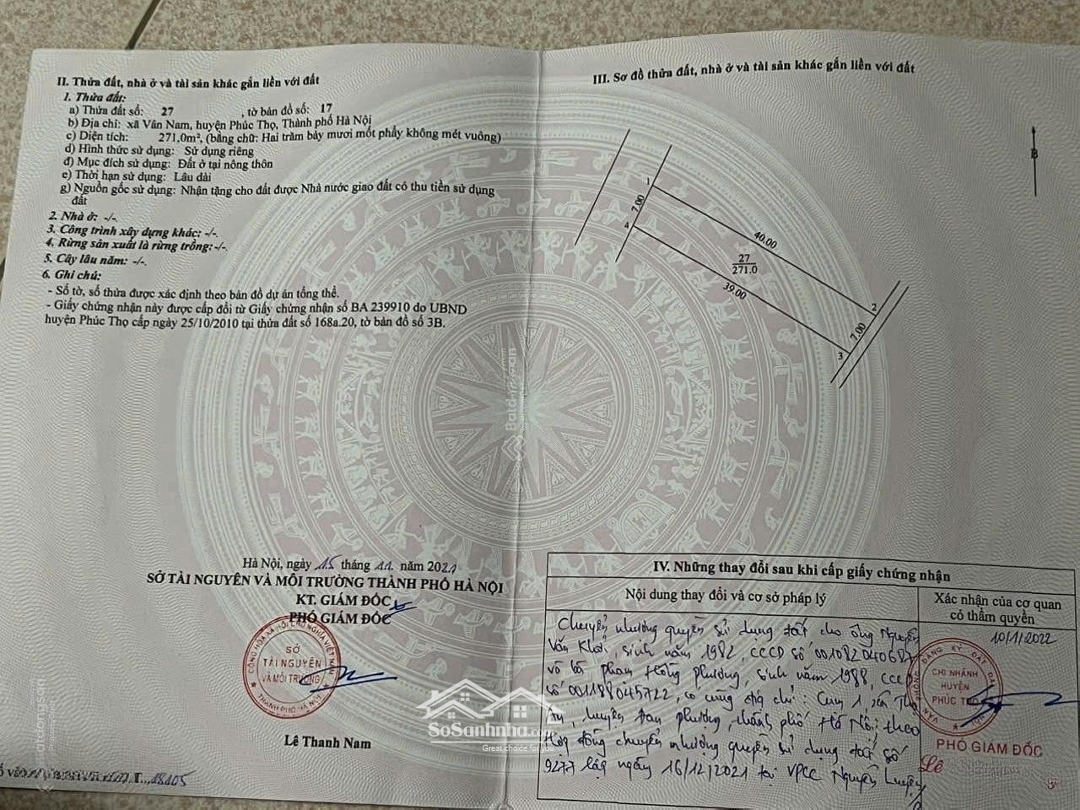 II. Thửa đất, nhà ở và tài sản khác gắn liền với đất
1. Thửa đất:
a) Thửa đất số: 27 , tờ bản đồ số: 17
b) Địa chỉ: xã Vân Nam, huyện Phúc Thọ, Thành phố Hà Nội
c) Diện tích: 271,0m², (bằng chữ: Hai trăm bảy mươi mốt phẩy không mét vuông)
d) Hình thức sử dụng: Sử dụng riêng
đ) Mục đích sử dụng: Đất ở tại nông thôn
e) Thời hạn sử dụng: Lâu dài
g) Nguồn gốc sử dụng: Nhận tặng cho đất được Nhà nước giao đất có thu tiền sử dụng
đất
2. Nhà ở: -/-
3. Công trình xây dựng khác: -/-
4. Rừng sản xuất là rừng trồng: -/-
5. Cây lâu năm: -/-
6. Ghi chú:
- Số tờ, số thửa được xác định theo bản đồ dự án tổng thể.
- Giấy chứng nhận này được cấp đổi từ Giấy chứng nhận số BA 239910 do UBND
huyện Phúc Thọ cấp ngày 25/10/2010 tại thửa đất số 168a.20, tờ bản đồ số 3B.
Hà Nội, ngày 15 tháng 11 năm 2021
SỞ TÀI NGUYÊN VÀ MÔI TRƯỜNG THÀNH PHỐ HÀ NỘI
KT. GIÁM ĐỐC
PHÓ GIÁM ĐỐC
SỞ
TÀI NGUYÊN
VÀ MÔI TRƯỜNG
Lê Thanh Nam
18105
III. Sơ đồ thửa đất, nhà ở và tài sản khác gắn liền với đất
B
1
7.00
4
40.00
27
271.0
39.00
2
7.00
3
IV. Những thay đổi sau khi cấp giấy chứng nhận
Nội dung thay đổi và cơ sở pháp lý
Xác nhận của cơ quan
có thẩm quyền
Chuyển nhượng quyền sử dụng đất cho ông Nguyễn
Văn Khởi, sinh năm 1982, CCCD số
và bà Phan Hồng Phương, sinh năm 1988, CCCD
số 001188045722, có cùng địa chỉ: Cụm 1, xã Thọ
An, huyện Đan Phượng, thành phố Hà Nội; theo
Hợp đồng chuyển nhượng quyền sử dụng đất số
9277 lập ngày 16/12/2021 tại VPCC Nguyễn
10/1/2022
CHI NHÁNH
HUYỆN
PHÚC THỌ
PHÓ GIÁM ĐỐC
Lê
SoSanhnha.com
Great choice for you
Batdongsan